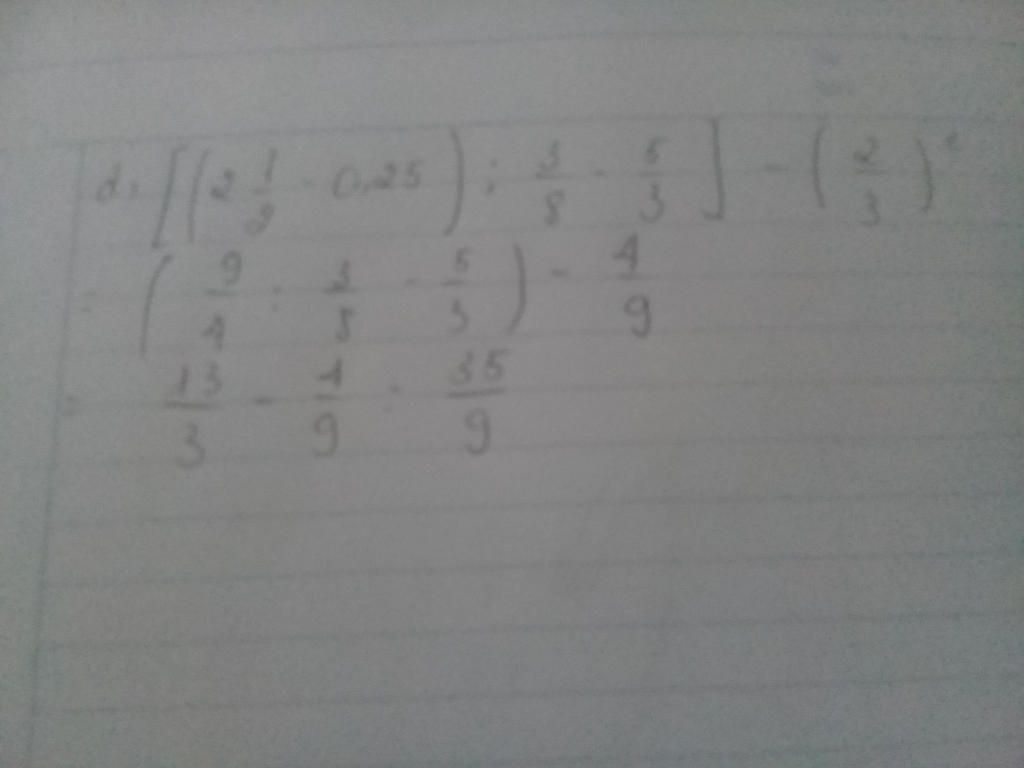 d, [(2 1/2 - 0,25) : 3/8 - 5/3] - (2/3)²
= (9/4 : 3/8 - 5/3) - 4/9
= 13/3 - 4/9 = 35/9